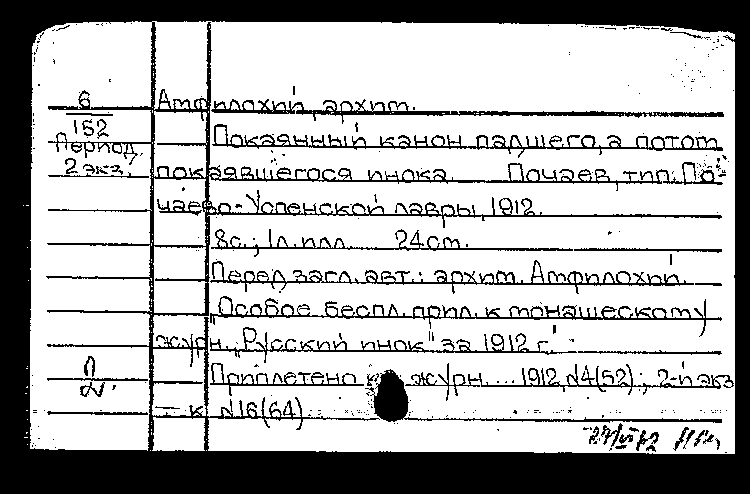 6 Амфилохий, архим.
152 Покаянный канон падшего, а потом
Период.
2 экз. покаявшегося инока. Почаев, тип. По-
чаево-Успенской лавры, 1912.
8 с.; 1 л. илл. 24 cm.
Перед загл. авт.: архим. Амфилохий.
"Особое беспл. прил. к монашескому
журн. "Русский инок" за 1912 г."
Приплетено к журн. ... 1912, №4(52); 2-й экз
– к №16(64)